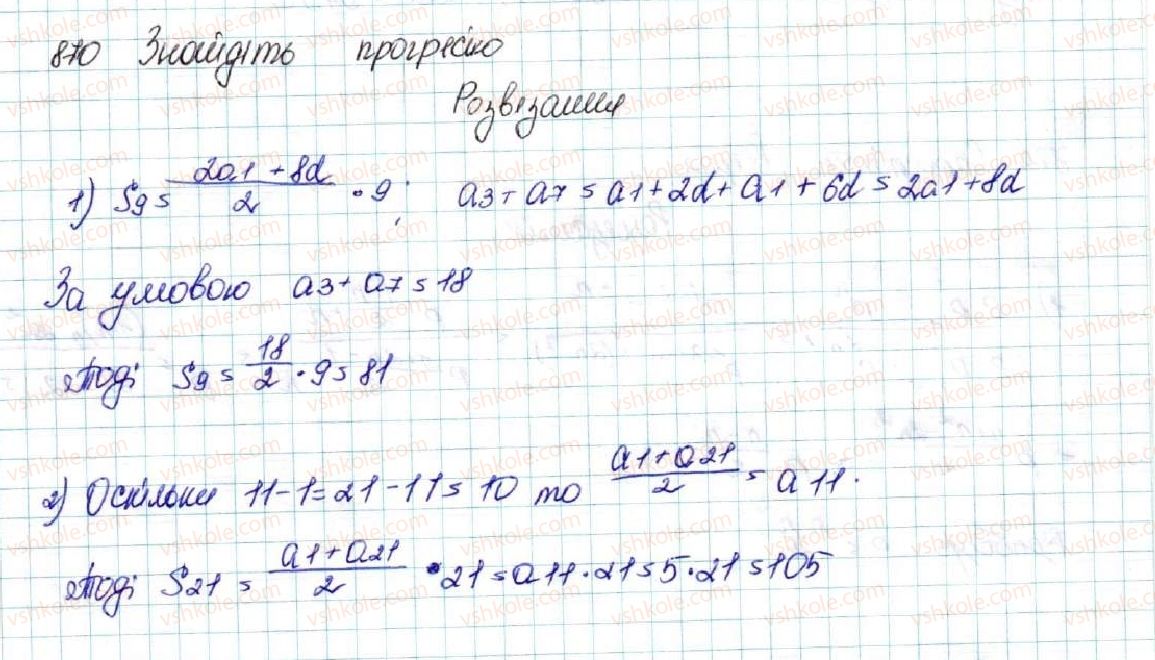 870 Знайдіть прогресію
Розвізання
1) S9 = (2a1 + 8d)/2 • 9; a3 + a7 = a1 + 2d + a1 + 6d = 2a1 + 8d
За умовою a3 + a7 = 18
Тоді S9 = 18/2 • 9 = 81
2) Оскільки 11 - 1 = 21 - 11 = 10 то (a1 + a21)/2 = a11.
Тоді S21 = (a1 + a21)/2 • 21 = a11 • 21 = 5 • 21 = 105